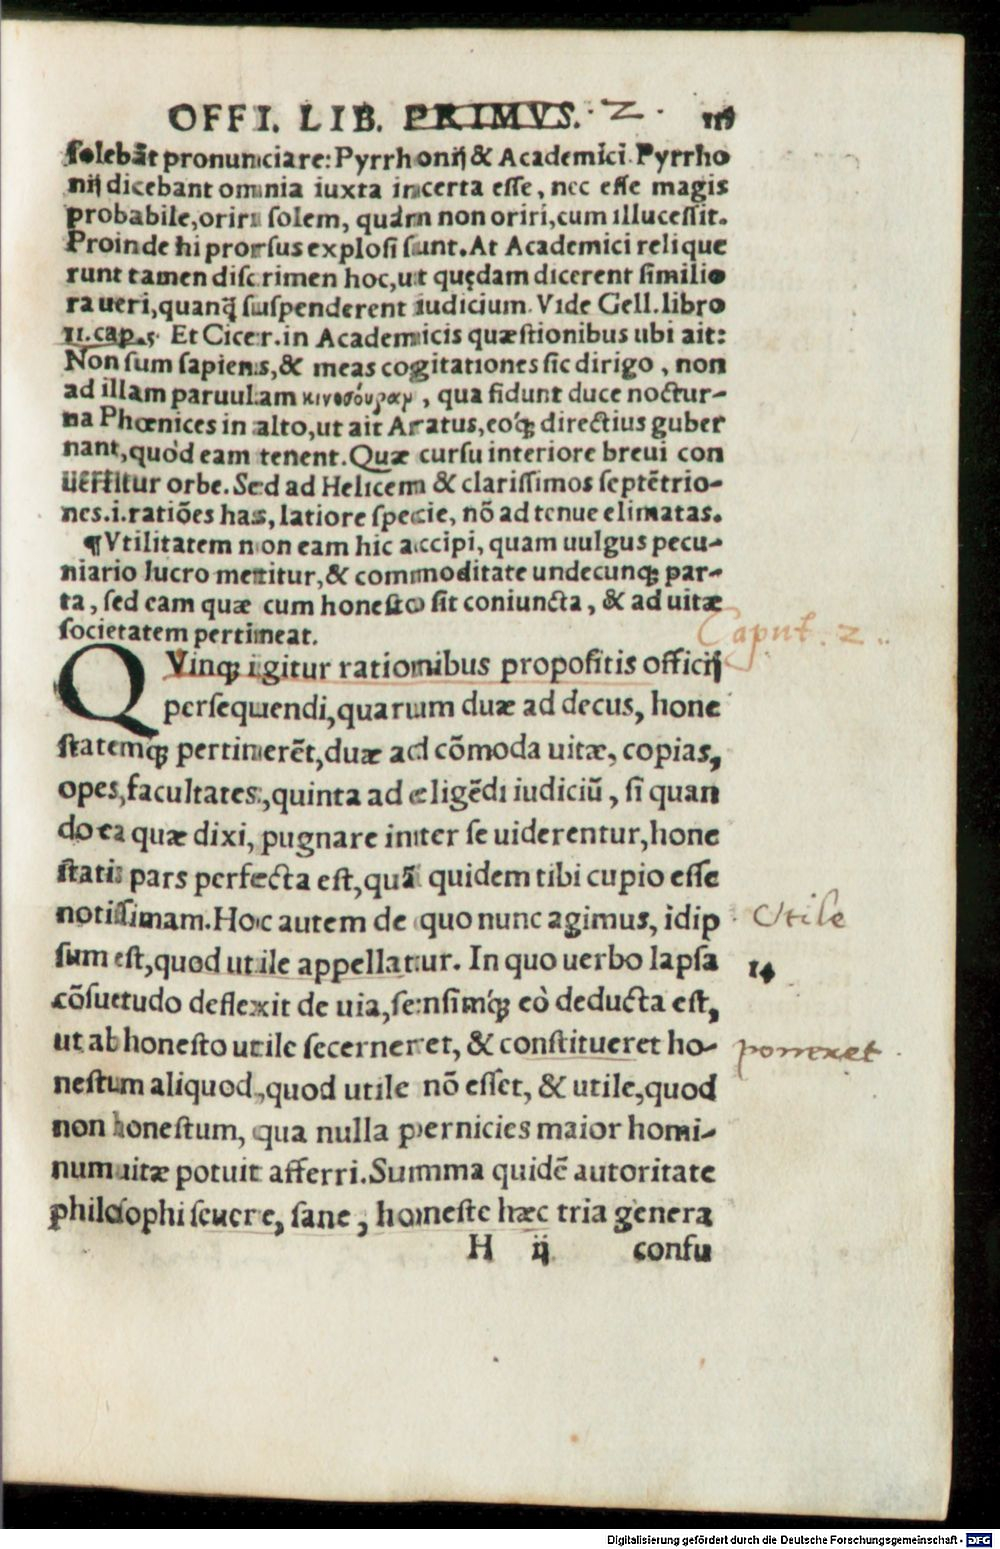 OFFI. LIB. PRIMVS. · 2 · 115
solebāt pronunciare: Pyrrhonij & Academici. Pyrrho
nij dicebant omnia iuxta incerta esse, nec esse magis
probabile, oriri solem, quàm non oriri, cum illucessit.
Proinde hi prorsus explosi sunt. At Academici relique
runt tamen discrimen hoc, ut quędam dicerent similio
ra ueri, quanq̃ suspenderent iudicium. Vide Gell. libro
11. cap. 5 Et Cicer. in Academicis quæstionibus ubi ait:
Non sum sapiens, & meas cogitationes sic dirigo, non
ad illam paruulam κινοσόυραμ, qua fidunt duce noctur-
na Phœnices in alto, ut ait Aratus, eóq; directius guber
nant, quòd eam tenent. Quæ cursu interiore breui con
uertitur orbe. Sed ad Helicem & clarissimos septẽtrio-
nes. i. ratiões has, latiore specie, nõ ad tenue elimatas.
¶ Vtilitatem non eam hic accipi, quam uulgus pecu-
niario lucro metitur, & commoditate undecunq; par-
ta, sed eam quæ cum honesto sit coniuncta, & ad uitæ
societatem pertineat.
Caput. 2.
QVinq; igitur rationibus propositis officij
persequendi, quarum duæ ad decus, hone
statemq; pertinerēt, duæ ad cōmoda uitæ, copias,
opes, facultates, quinta ad eligēdi iudiciū, si quan
do ea quæ dixi, pugnare inter se uiderentur, hone
statis pars perfecta est, quā quidem tibi cupio esse
notissimam. Hoc autem de quo nunc agimus, idip
Utile
sum est, quod utile appellatur. In quo uerbo lapsa
14
cōsuetudo deflexit de uia, sensimq́; eò deducta est,
ut ab honesto utile secerneret, & constitueret ho-
porrexet
nestum aliquod, quod utile nō esset, & utile, quod
non honestum, qua nulla pernicies maior homi-
num uitæ potuit afferri. Summa quidē autoritate
philosophi seuere, sane, honeste hæc tria genera
H ij confu
Digitalisierung gefördert durch die Deutsche Forschungsgemeinschaft - DFG